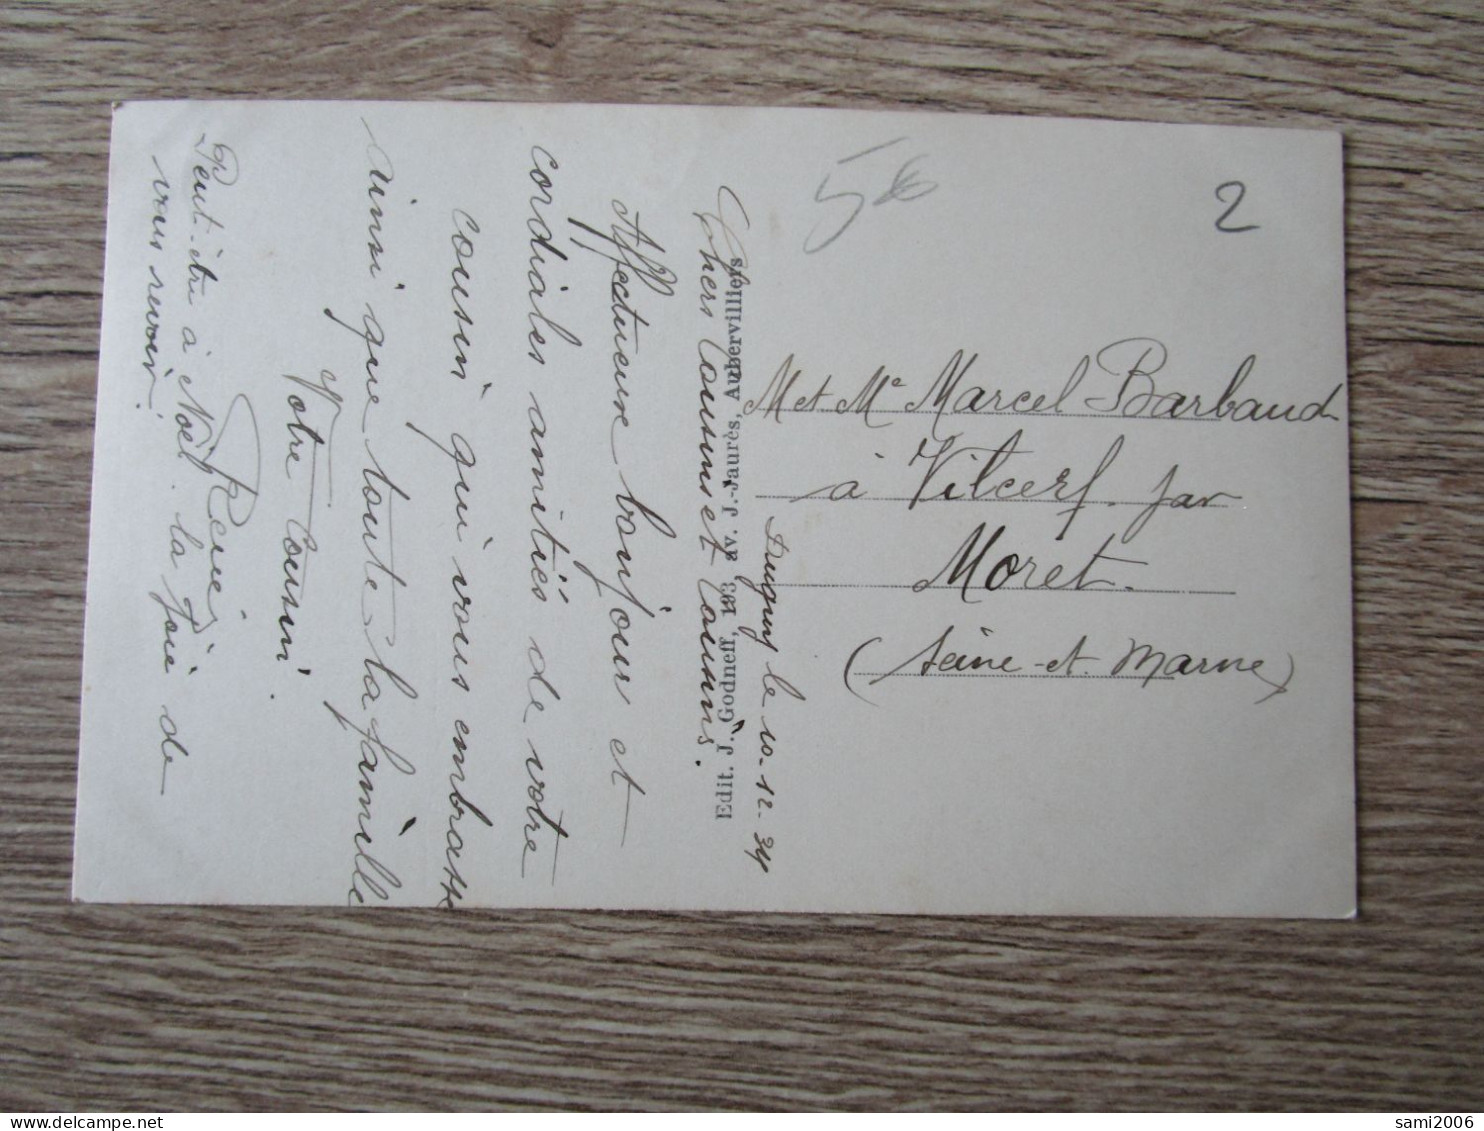 Dugny le 10-12-34
Chers Cousins et Cousines.
Affectueux bonjour et
cordiales amitiés de votre
cousin qui vous embrasse
ainsi que toute la famille
Votre Cousin.
René
Peut-être à Noël la joie de
vous revoir.
Edit. J. Godneff, 193 av. J.-Jaurès, Aubervilliers
5€
2
M et Me Marcel Barbaud
à Vilcerf par
Moret.
(Seine-et-Marne)
sami2006